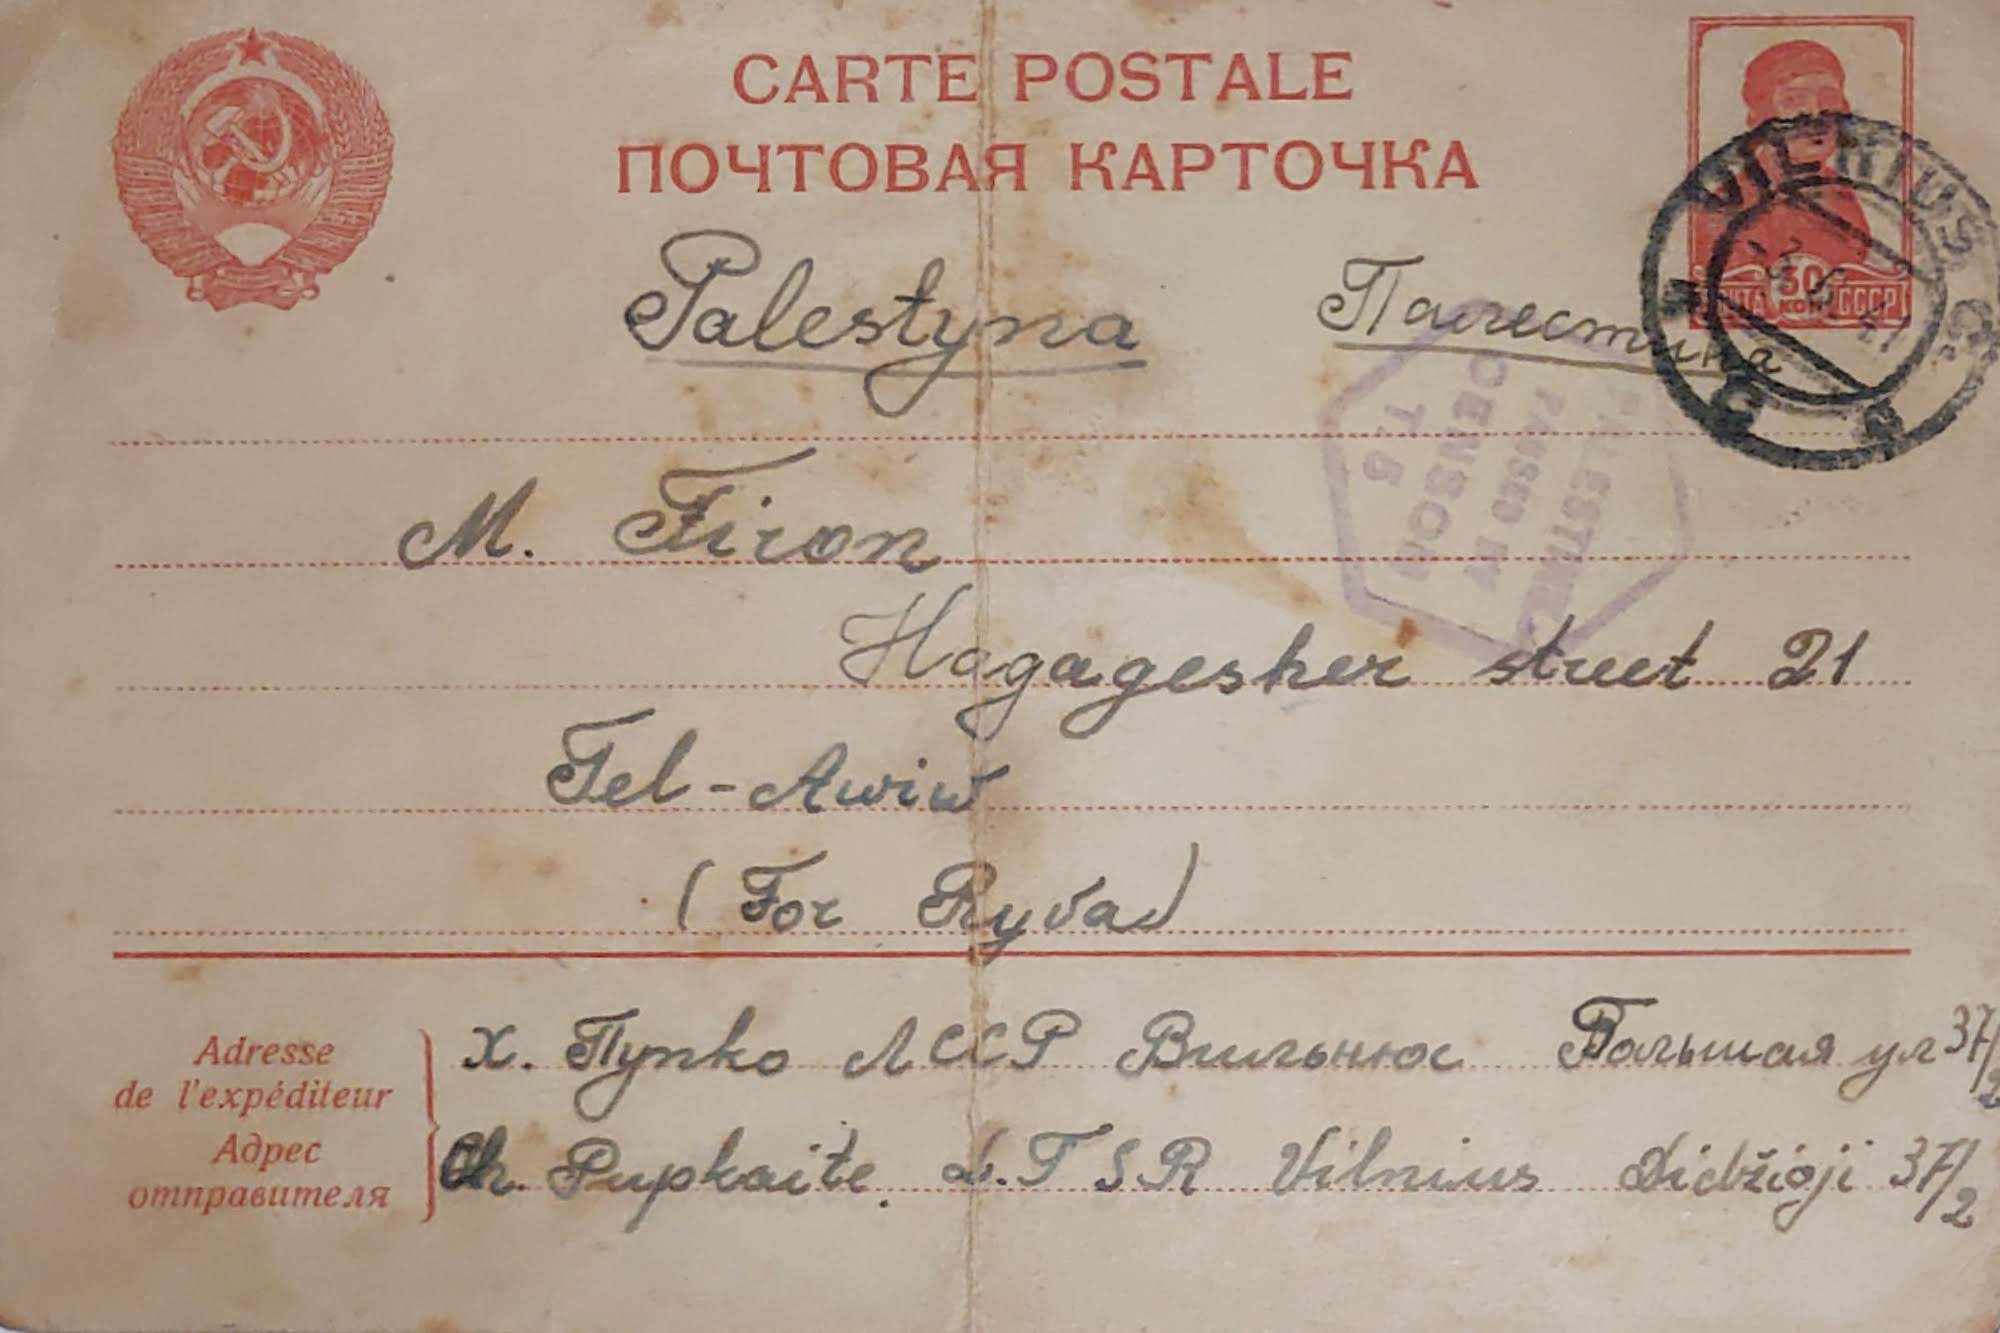 CARTE POSTALE
ПОЧТОВАЯ КАРТОЧКА
30
КОП
СССР
VILNIUS
Palestyna Палестина
PALESTINE
PASSED BY
CENSOR
T. 5
M. Firon
Hagagesher street 21
Tel-Awiw
(For Ryva)
Adresse
de l'expéditeur
Адрес
отправителя
Х. Пупко ЛССР Вильнюс Большая ул 37/2
Ch. Pupkaite. L.TSR Vilnius Didžioji 37/2